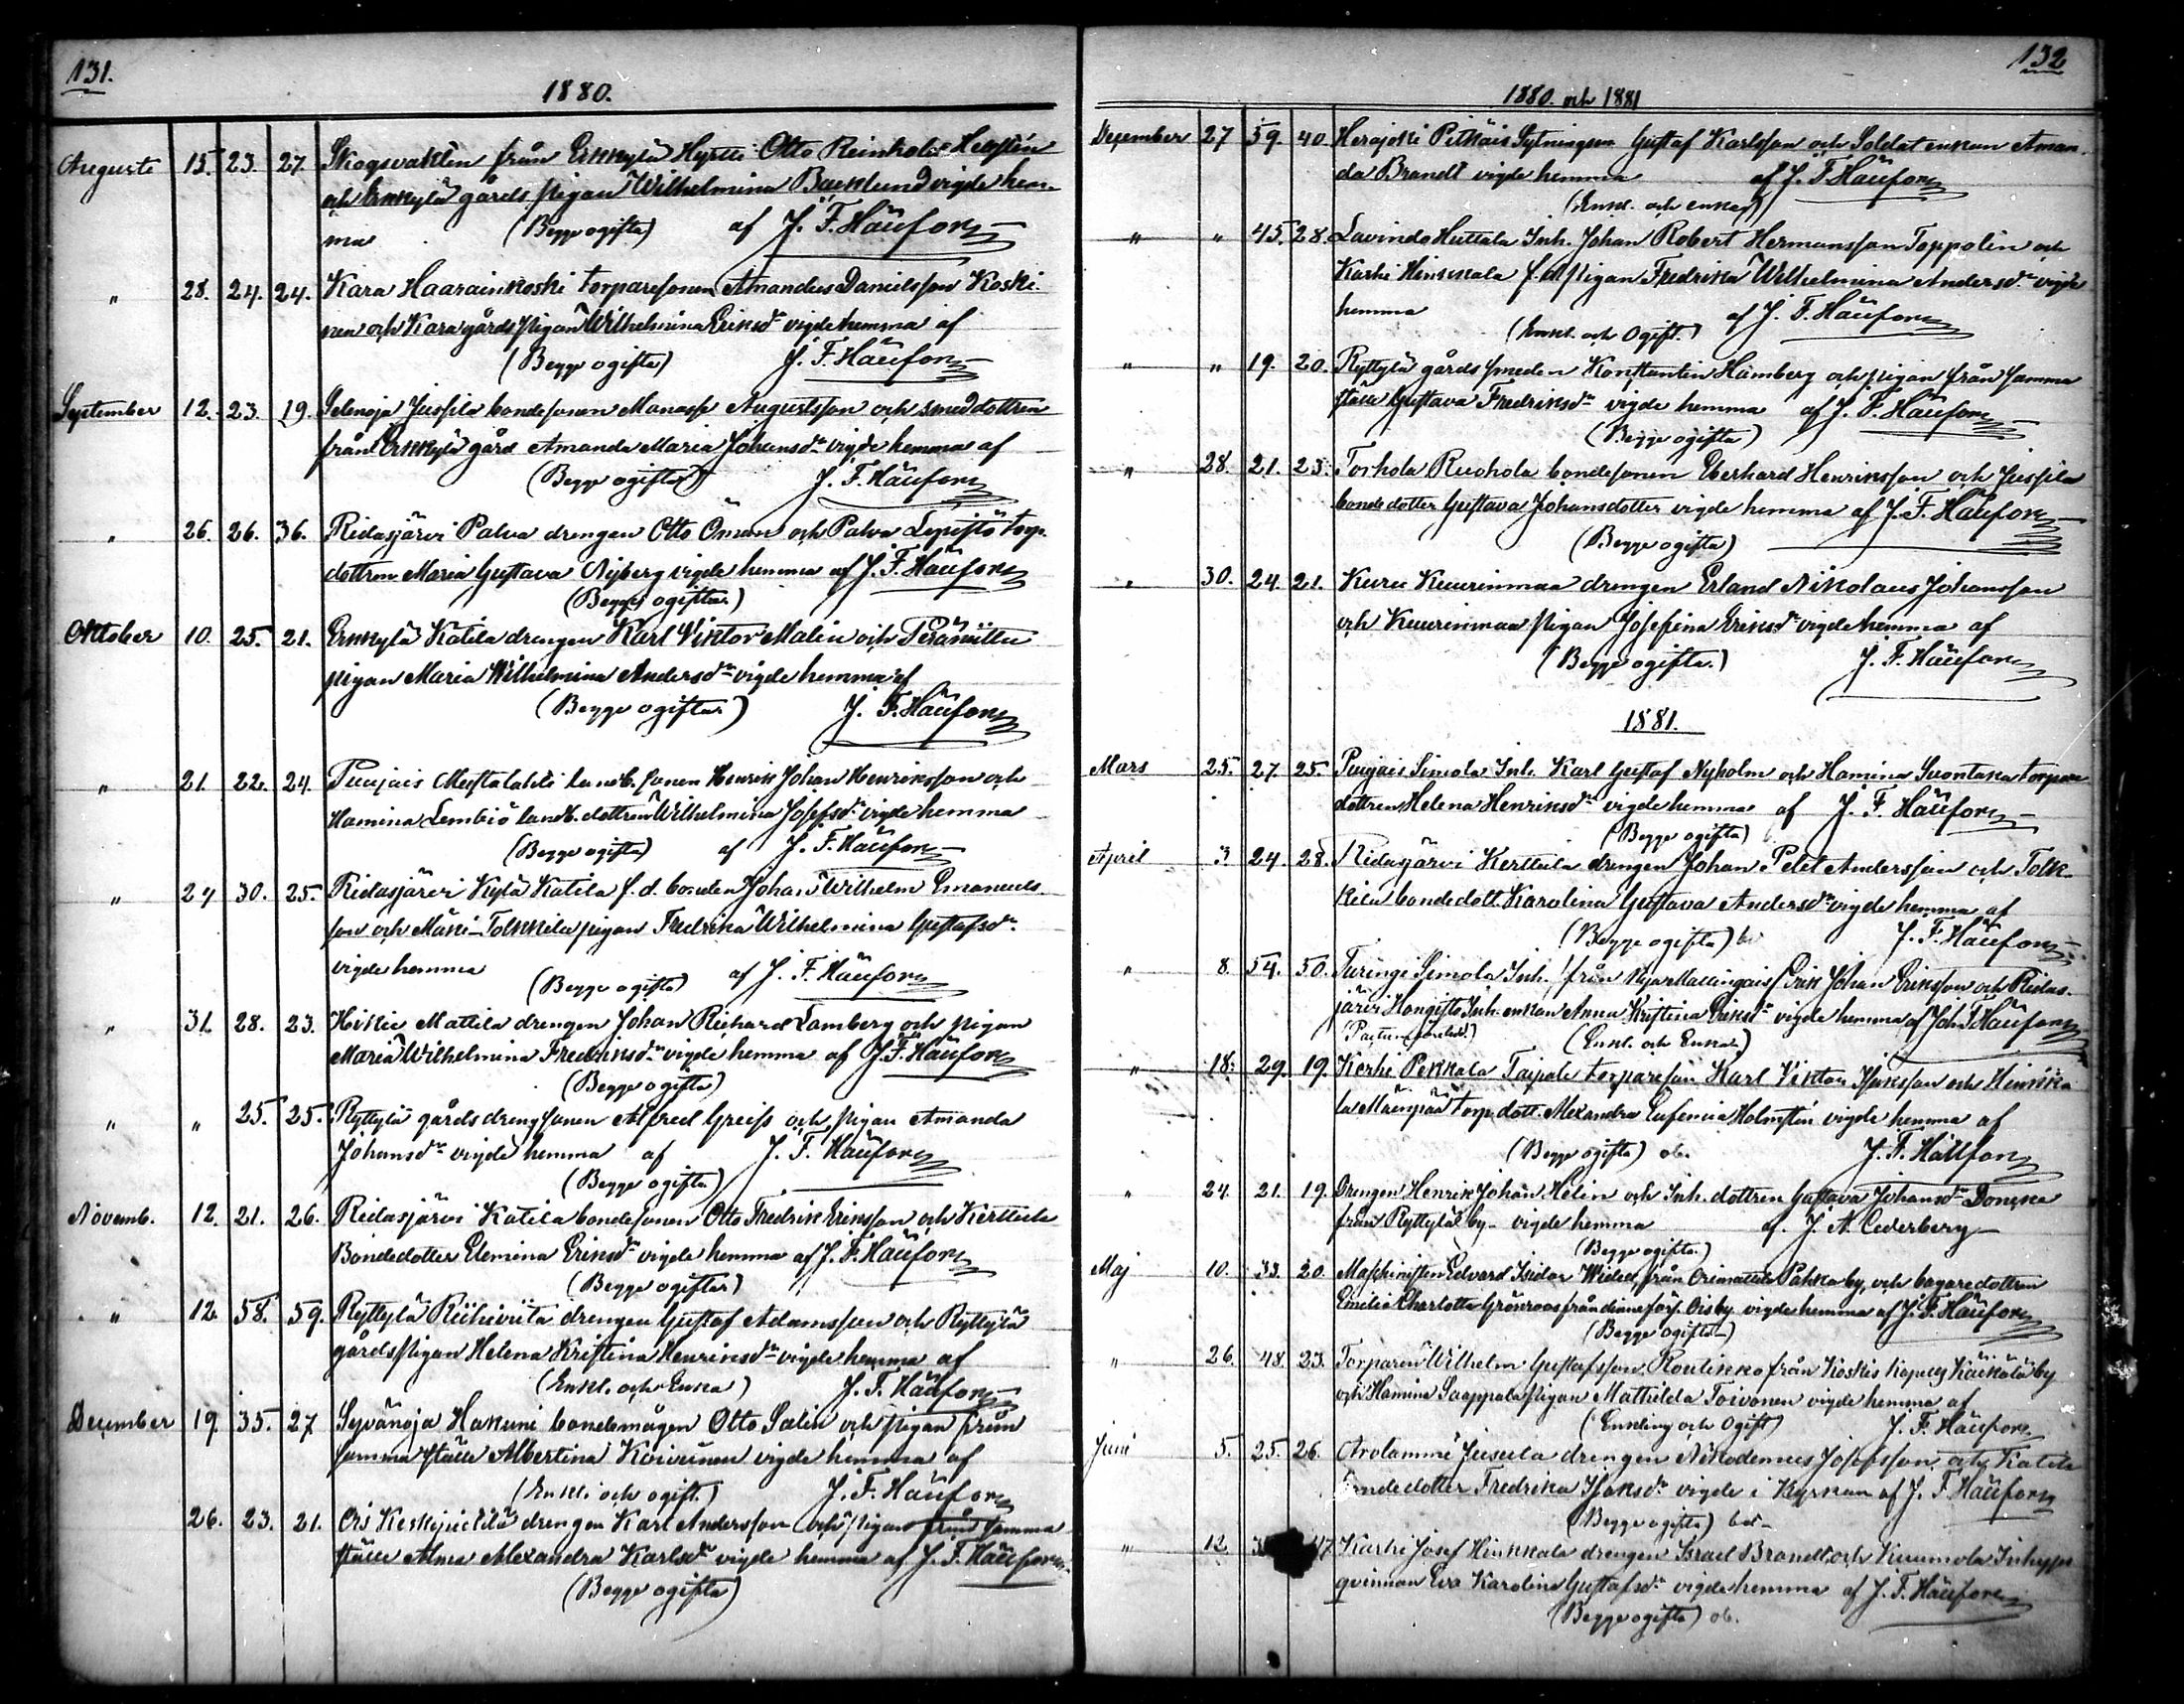 131.
1880.
Augusti 15. 23. 27. Skogsvakten från Erkkylä Hyrtti Otto Reinhold
och Erkkylä gårds pigan Wilhelmina Backlund vigde hem-
ma (Begge ogifta) af J. F. Häufors
" 28. 24. 24. Kara Haarainkoski torparesonen Amandus Danielsson Koski-
nen och Kara gårds pigan Wilhelmina Eriksdr vigde hemma af
(Begge ogifta) J. F. Häufors
September 12. 23. 19. Selenoja Jussila bondesonen Manasse Augustsson och smeddottren
från Erkkylä gård Amanda Maria Johansdr vigde hemma af
(Begge ogifta) J. F. Häufors
" 26. 26. 36. Ridasjärvi Palva drengen Otto Öman och Palva Lepistö torp.
dottren Maria Gustava Nyberg vigde hemma af J. F. Häufors
(Begge ogifta)
Oktober 10. 25. 21. Erkkylä Katila drengen Karl Viktor Malin och Peräniittu
pigan Maria Wilhelmina Andersdr vigde hemma af
(Begge ogifta) J. F. Häufors
" 21. 22. 24. Puujais Mustalahti landb. sonen Henrik Johan Henriksson och
Hamina Lembiö landb. dottren Wilhelmina Josefsdr vigde hemma
(Begge ogifta) af J. F. Häufors
" 24 30. 25. Ridasjärvi Kylä Katila f.d. bonden Johan Wilhelm Emanuels-
son och Mäki-Tolkkila pigan Fredrika Wilhelmina Gustafsdr
vigde hemma (Begge ogifta) af J. F. Häufors
" 31. 28. 23. Hikiä Mattila drengen Johan Richard Lamberg och pigan
Maria Wilhelmina Fredriksdr vigde hemma af J. F. Häufors
(Begge ogifta)
" " 25. 25. Ryttylä gårds drengsonen Alfred Greiss och pigan Amanda
Johansdr vigde hemma af J. F. Häufors
(Begge ogifta)
Novemb. 12. 21. 26. Ridasjärvi Katila bondesonen Otto Fredrik Eriksson och Kerttula
Bondedotter Elemina Eriksdr vigde hemma af J. F. Häufors
(Begge ogifta)
" 12. 58. 59. Ryttylä Riihiviita drengen Gustaf Adamsson och Ryttylä
gårds pigan Helena Kristina Henriksdr vigde hemma af
(Enkl. och Enka) J. F. Häufors
December 19. 35. 27 Syvänoja Hakuni bondemågen Otto Salin och pigan från
samma ställe Albertina Koivunen vigde hemma af
(Enkl. och ogift.) J. F. Häufors
26. 23. 21. Ois drengen Karl Andersson och pigan från samma
ställe Alma Alexandra Karlsdr vigde hemma af J. F. Häufors
(Begge ogifta)
132
1880. och 1881
December 27 59. 40. Herajoki Pitkäis Sytningsm. Gustaf Karlsson och Soldat enkan Aman-
da Brandt vigde hemma af J. F. Häufors
(Enkl. och enka)
" " 45. 28. Lavinto Huttala Inh. Johan Robert Hermansson Toppolin och
Karhi Hinkkala f.d. pigan Fredrika Wilhelmina Andersdr vigde
hemma af J. F. Häufors
(Enkl. och Ogift.)
" " 19. 20. Ryttylä gårds smeden Konstantin Hamberg och pigan från samma
ställe Gustava Fredriksdr vigde hemma af J. F. Häufors
(Begge ogifta)
" 28. 21. 23. Torhola Ruohola bondesonen Eberhard Henriksson och Jussila
bondedotter Gustava Johansdotter vigde hemma af J. F. Häufors
(Begge ogifta)
" 30. 24. 21. Kuru Kuurinmaa drengen Erland Nikolaus Johansson
och Kuurinmaa pigan Josefina Eriksdr vigde hemma af
(Begge ogifta.) J. F. Häufors
1881.
Mars 25. 27. 25. Puujais Simola Inh. Karl Gustaf Nyholm och Hamina Suontaka torpar
dottren Helena Henriksdr vigde hemma af J. F. Häufors
(Begge ogifta)
April 3 24. 28. Ridasjärvi Kerttula drengen Johan Petet Andersson och Tolk-
kila bondedott. Karolina Gustava Andersdr vigde hemma af
(Begge ogifta) J. F. Häufors
" 8. 54. 50. Turinge Simola Inh. Erik Johan Eriksson och Ridas-
järvi Hongisto Inh. enkan Anna Kristina Eriksdr vigde hemma af Joh. F. Häufors
(Enkl. och Enka)
" 18. 29. 19. Karhi Pekkala Taipale torpareson Karl Viktor Isaksson och Hinkka-
la Mäenpää torp. dott. Alexandra Eufemia Holmstén vigde hemma af
(Begge ogifta) ob. J. F. Häufors
" 24. 21. 19. Drengen Henrik Johan Helin och Inh. dottren Gustava Johansdr Donska
från Ryttylä by vigde hemma af J. A. Cederberg
(Begge ogifta.)
Maj 10. 33. 20. Maschinisten Edvard Isidor från Orimattila Pakka by och bagaredottren
Emilia Charlotta Grönroos från Oisby vigde hemma af J. F. Häufors
(Begge ogifta)
" 26. 48. 23. Torparen Wilhelm Gustafsson Roulikko från Koskis kapell Käikälä by
och Hamina Saappala pigan Mathilda Toivonen vigde hemma af
(Enkling och Ogift) J. F. Häufors
Juni 5. 25. 26. Arolammi Juseula drengen Nikodemus Josefsson och Katila
Bondedotter Fredrika Isaksdr vigde i Kyrkan af J. F. Häufors
(Begge ogifta)
" 12. 47 Karhi Josef Hinkkala drengen Israel Brandt och Kuumola Inhyses
qvinnan Eva Karolina Gustafsdr vigde hemma af J. F. Häufors
(Begge ogifta) ob.